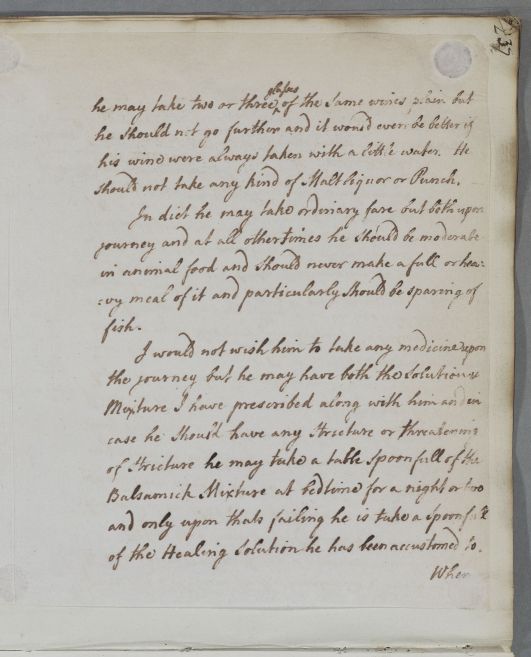 237
glasses
he may take two or three ^ of the same wines plain but
he should not go further and it would even be better if
his wine were always taken with a little water. He
should not take any kind of Malt liquor or Punch.
In diet he may take ordinary fare but both upon
journey and at all other times he should be moderate
in animal food and should never make a full or hea:
:vy meal of it and particularly should be sparing of
fish.
I would not wish him to take any medicine upon
the journey but he may have both the Solution &
Mixture I have prescribed along with him and in
case he should have any Stricture or threatening
of Stricture he may take a table spoonfull of the
Balsamick Mixture at bedtime for a night or two
and only upon thats failing he is take a spoonfull
of the Healing Solution he has been accustomed to.
When